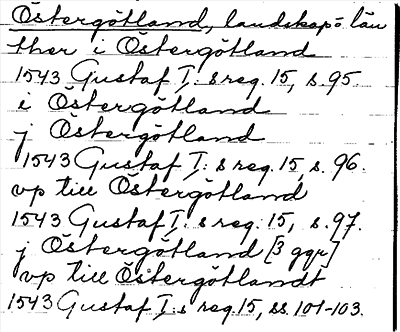 Östergötland, landskap o län
ther i Östergötland
1543 Gustaf I:s reg. 15, s. 95.
i Östergötland
j Östergötland
1543 Gustaf I:s reg. 15, s. 96.
vp till Östergötland
1543 Gustaf I:s reg. 15, s. 97.
j Östergötland [3 ggr]
vp till Östergötlandt
1543 Gustaf I:s reg. 15, ss. 101-103.